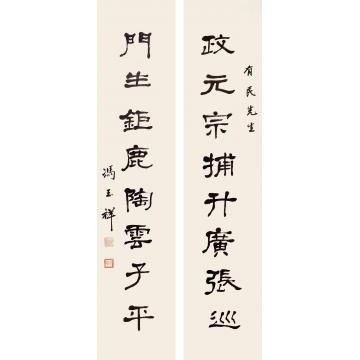 有民先生
政元宗捕升廣張巡
門生鉅鹿陶雲子平
馮玉祥